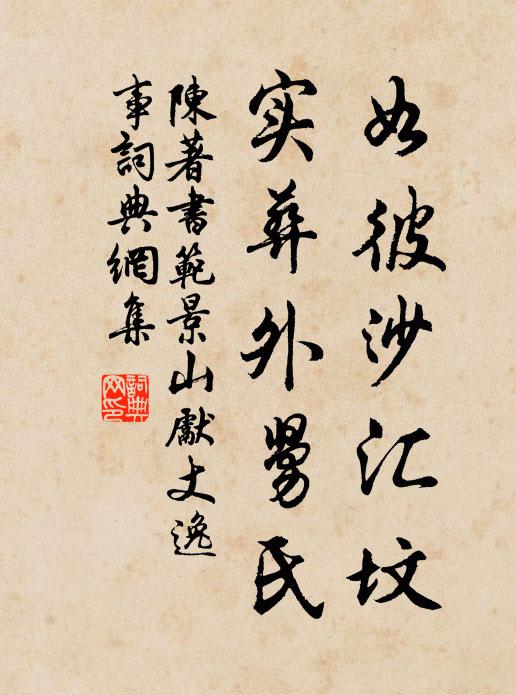 如彼沙汇坟
实葬外舅氏
陳著書範景山獻丈逸
事詞典網集
詞典网印